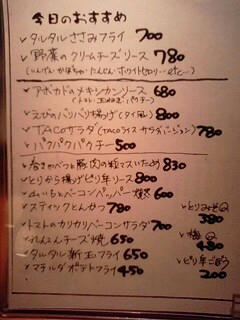 今日のおすすめ
✓タルタルささみフライ 700
✓野菜のクリームチーズソース 780
(いんげん・かぼちゃ・にんじん・ホワイトセロリー etc…)
✓アボカドのメキシカンソース 680
(トマト、玉ねぎ、パクチー)
✓えびのパリパリ揚げ(タイ風) 800
✓TACOサラダ(TACOライスサラダバージョン) 780
✓パクパクパクチー 500
✓春きゃべつと豚肉の粒マスいため 830
✓とりから揚げピリ辛ソース 800
ベーコンペッパー炒 600
✓スティックとんかつ 780
✓トマトのカリカリベーコンサラダ 700
✓れんこんチーズ焼 650
✓タルタル新玉フライ 650
✓マチルダポテトフライ 450
✓とりみそQ 380
✓梅Q 480
✓ピリ辛ごぼう 200